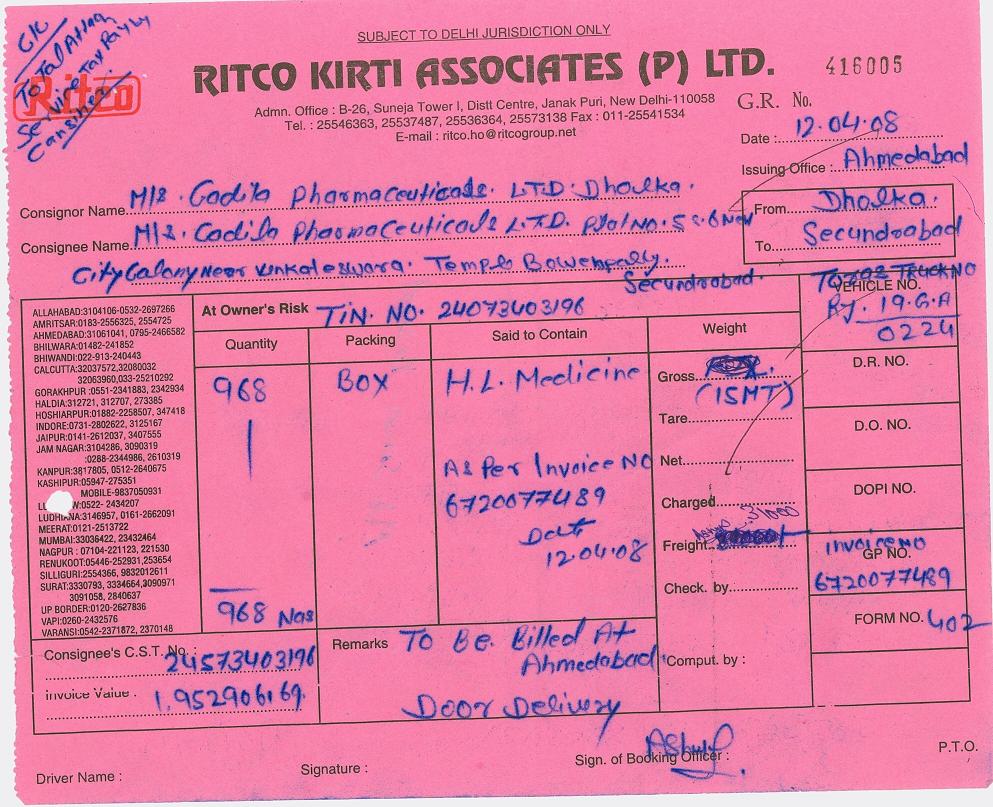 C/c
Total Attach
Service Tax Pay by
Ritco
SUBJECT TO DELHI JURISDICTION ONLY
RITCO KIRTI ASSOCIATES (P) LTD.
416005
Admn. Office : B-26, Suneja Tower I, Distt Centre, Janak Puri, New Delhi-110058
G.R. No.
Tel. : 25546363, 25537487, 25536364, 25573138 Fax : 011-25541534
E-mail : ritco.ho@ritcogroup.net
Date : 12.04.08
Issuing Office : Ahmedabad
Consignor Name M/s. Cadila Pharmaceuticals. LTD. Dholka.
From Dholka.
Consignee Name M/s. Cadila Pharmaceuticals LTD. Plot No. 5 & 6 New
To Secundrabad
City Calony Near Venkateswara. Temple Bowenpally.
Secundrabad.
Truck NO
VEHICLE NO.
RJ. 19.G.A
0224
At Owner's Risk TIN. NO. 24073403196
Quantity
Packing
Said to Contain
Weight
ALLAHABAD:3104106-0532-2697266
AMRITSAR:0183-2556325, 2554725
AHMEDABAD:31061041, 0795-2466582
BHILWARA:01482-241852
BHIWANDI:022-913-240443
CALCUTTA:32037572,32080032
32063960,033-25210292
GORAKHPUR :0551-2341883, 2342934
HALDIA:312721, 312707, 273385
HOSHIARPUR:01882-2258507, 347418
INDORE:0731-2802622, 3125167
JAIPUR:0141-2612037, 3407555
JAM NAGAR:3104286, 3090319
:0288-2344986, 2610319
KANPUR:3817805, 0512-2640675
KASHIPUR:05947-275351
MOBILE-9837050931
W:0522- 2434207
LUDHIANA:3146957, 0161-2662091
MEERAT:0121-2513722
MUMBAI:33036422, 23432464
NAGPUR : 07104-221123, 221530
RENUKOOT:05446-252931,253654
SILLIGURI:2554366, 9832012611
SURAT:3330793, 3334664,3090971
3091058, 2840637
UP BORDER:0120-2627836
VAPI:0260-2432576
VARANSI:0542-2371872, 2370148
968
BOX
H.L. Medicine
As Per Invoice NO
6720077489
Date
12.04.08
968 Nos
Gross
(15MT)
Tare
Net
Charged
Freight
Check. by
Comput. by :
D.R. NO.
D.O. NO.
DOPI NO.
Invoice NO
GP NO.
6720077489
FORM NO. 402
Consignee's C.S.T. No. :
24573403196
Invoice Value :
1,952906.69.
Remarks To Be. Billed At
Ahmedabad
Door Delivery
Driver Name :
Signature :
Sign. of Booking Officer :
P.T.O.